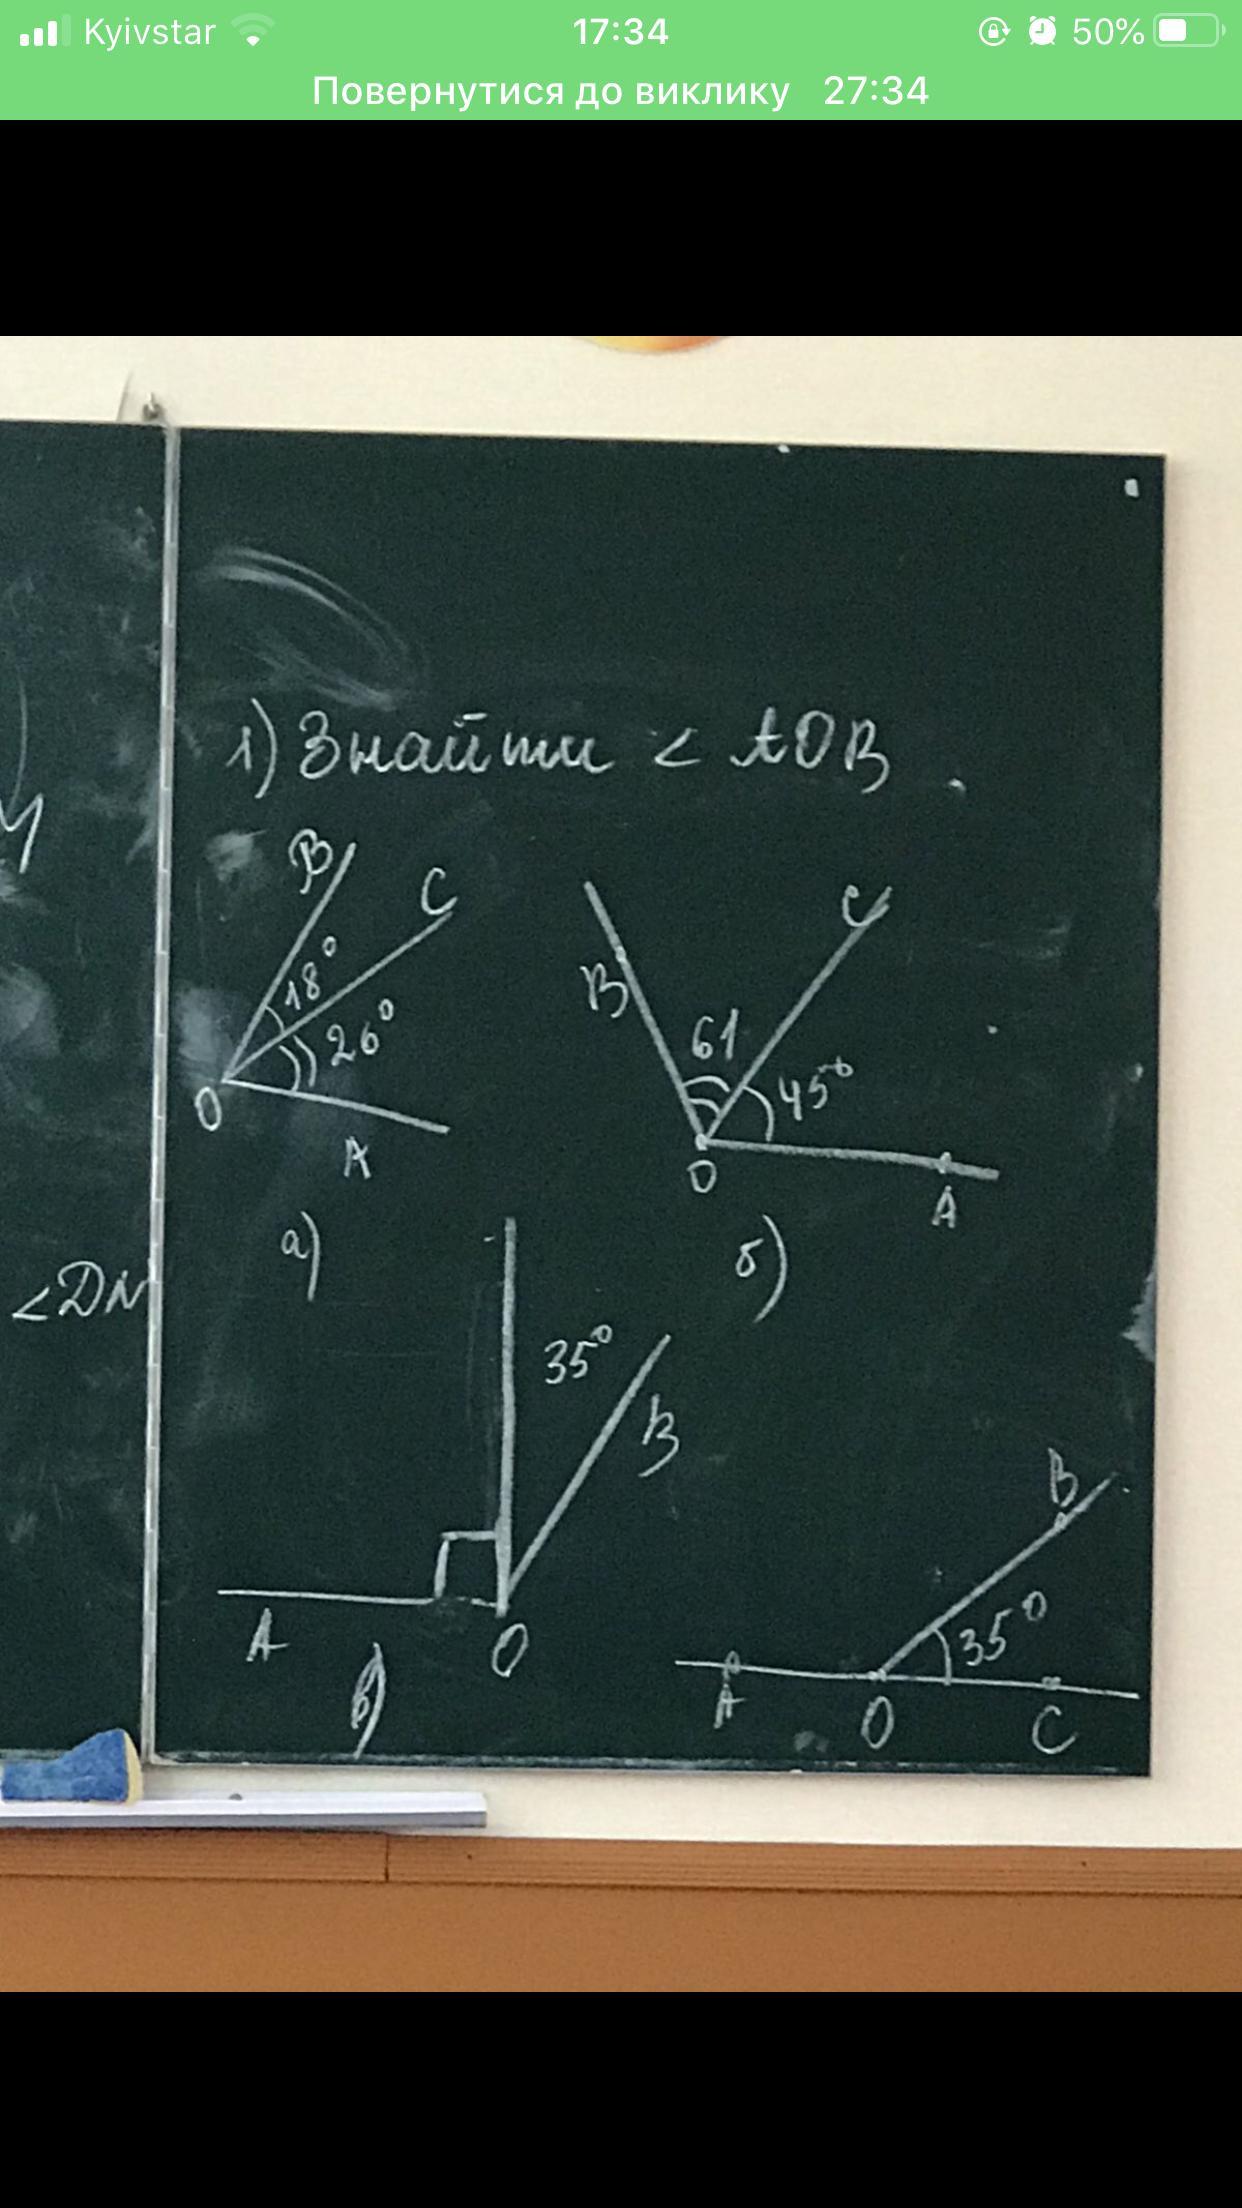 Kyivstar 17:34 50%
Повернутися до виклику 27:34
1) Знайти < AOB
B
C
18°
26°
O
A
а)
B
C
61
45°
O
A
б)
<DN
35°
B
A
O
в)
B
35°
A
O
C